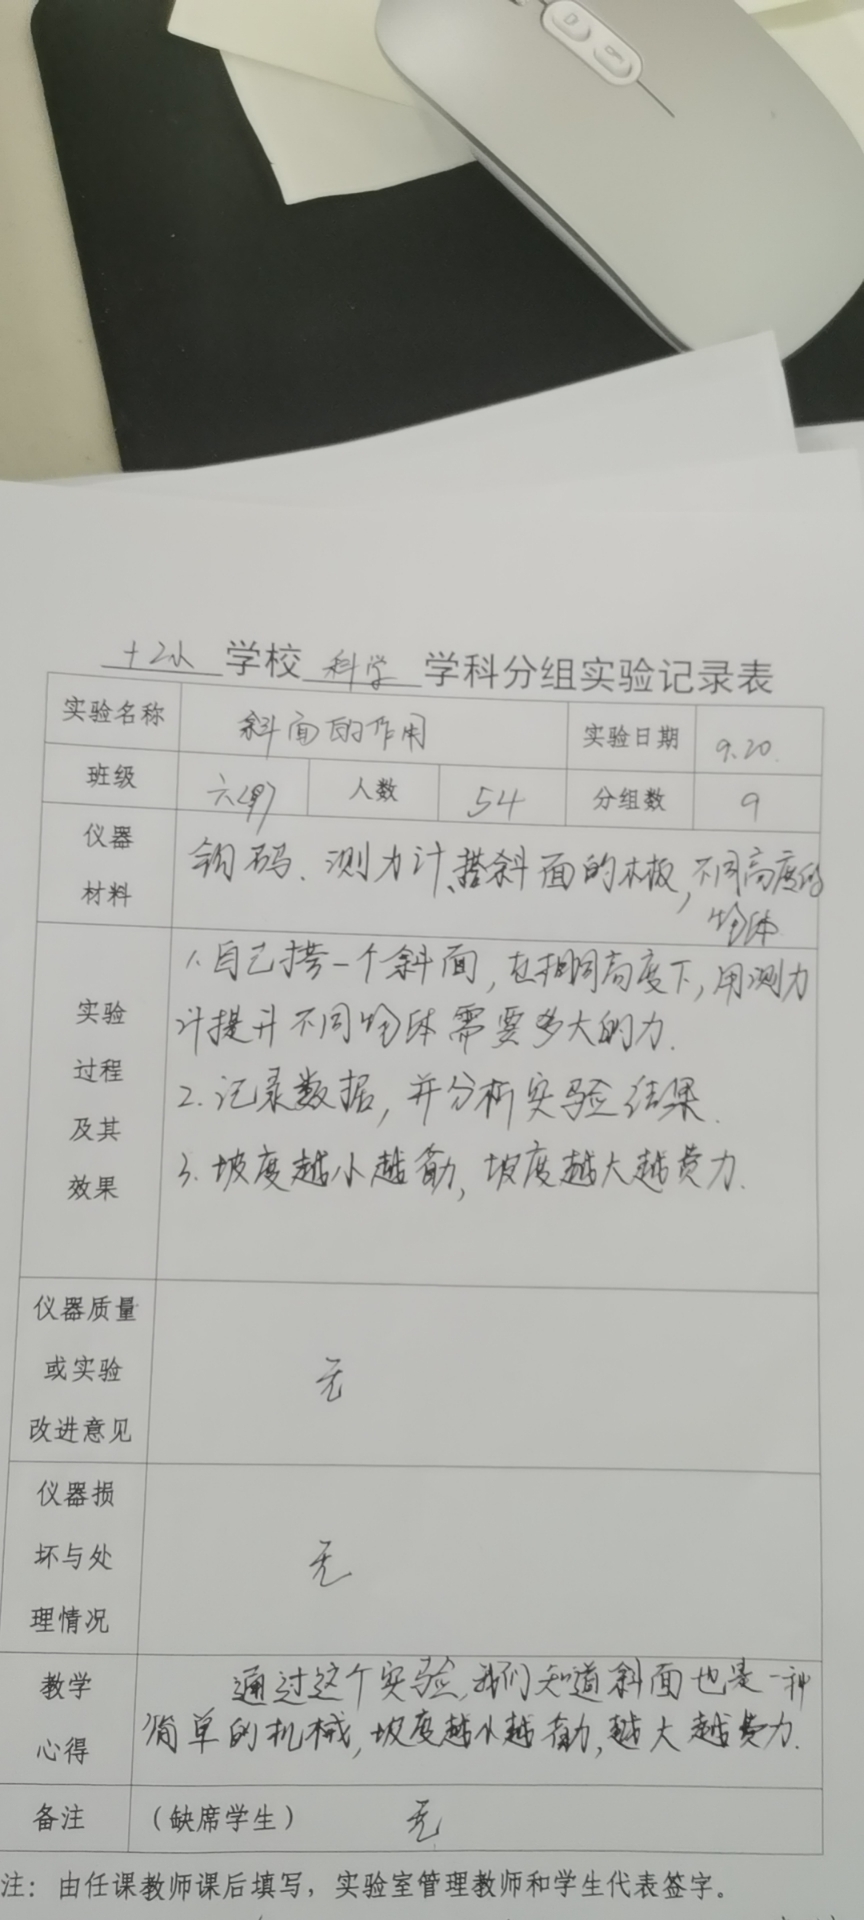 十二小 学校 科学 学科分组实验记录表
实验名称 斜面的作用 实验日期 9.20.
班级 人数 54 分组数 9
仪器材料 钩码、测力计、搭斜面的木板,不同高度的
物体
实验过程及其效果
1.自己搭一个斜面,在相同高度下,用测力
计提升不同物体需要多大的力.
2.记录数据,并分析实验结果.
3.坡度越小越省力,坡度越大越费力.
仪器质量或实验改进意见 无
仪器损坏与处理情况 无
教学心得 通过这个实验,我们知道斜面也是一种
简单的机械,坡度越小越省力,越大越费力.
备注 (缺席学生) 无
注:由任课教师课后填写,实验室管理教师和学生代表签字。